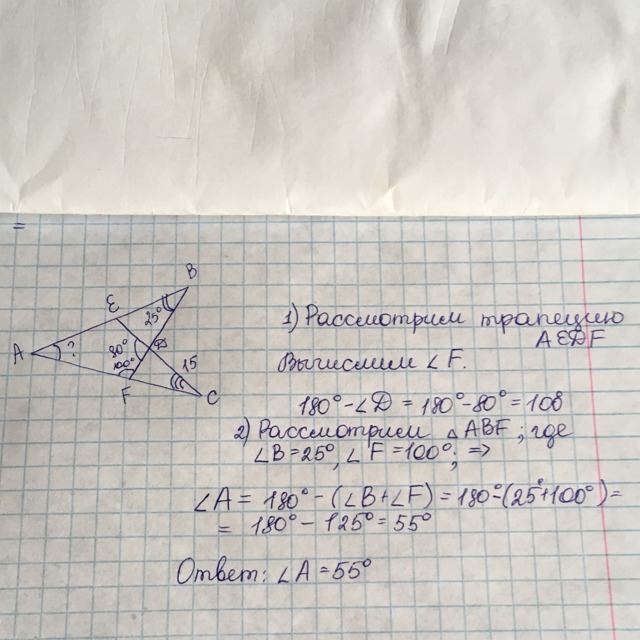 =
B
E
25°
A
?
80°
D
100°
15
F
C
1) Рассмотрим трапецию
AEDF
Вычислим ∠F.
180°-∠D = 180°-80° = 100
2) Рассмотрим △ABF; где
∠B=25°, ∠F=100°; =>
∠A = 180° - (∠B+∠F) = 180°-(25°+100°)=
= 180° - 125° = 55°
Ответ: ∠A = 55°